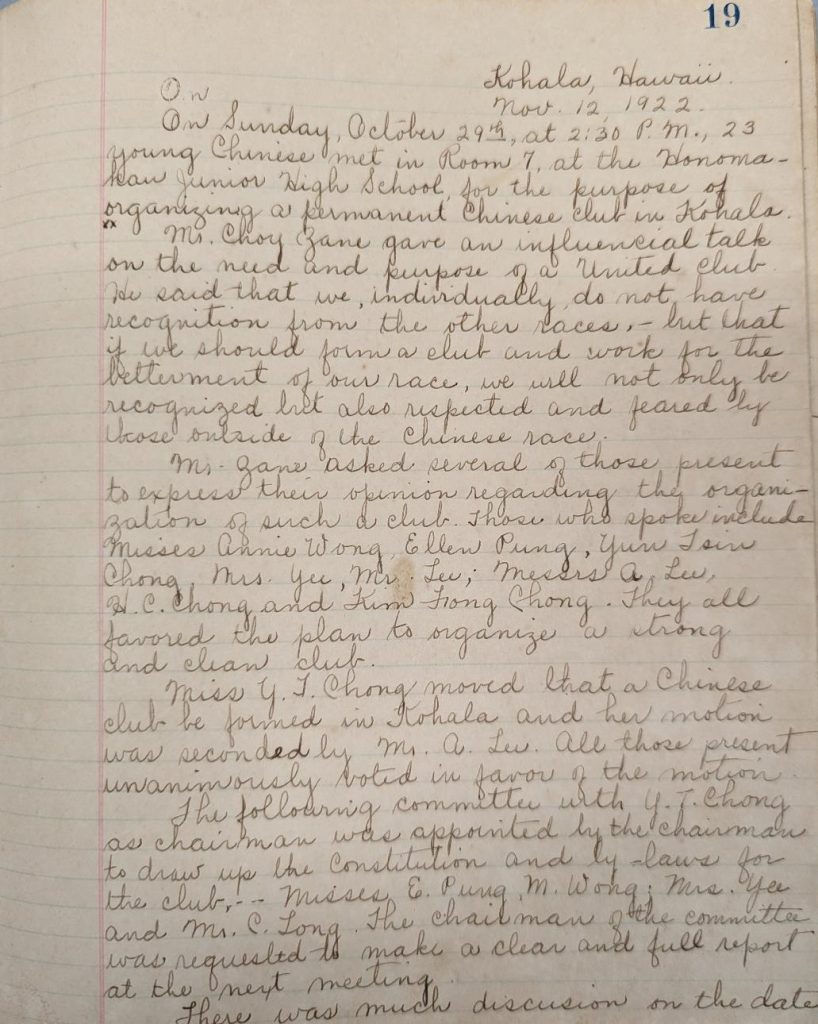 19
Kohala, Hawaii.
On
Nov. 12, 1922.
On Sunday, October 29th, at 2:30 P.M., 23
young Chinese met in Room 7, at the Honoma-
kau Junior High School, for the purpose of
organizing a permanent Chinese club in Kohala.
Mr. Choy Zane gave an influencial talk
on the need and purpose of a United Club.
He said that we, individually, do not have
recognition from the other races, - but that
if we should form a club and work for the
betterment of our race, we will not only be
recognized but also respected and feared by
those outside of the Chinese race.
Mr. Zane asked several of those present
to express their opinion regarding the organi-
zation of such a club. Those who spoke include
Misses Annie Wong, Ellen Pung, Yun Tsin
Chong, Mrs. Yee, Mr. Lee; Messrs A. Lee,
H. C. Chong and Kim Fong Chong. They all
favored the plan to organize a strong
and clean club.
Miss Y. T. Chong moved that a Chinese
club be formed in Kohala and her motion
was seconded by Mr. A. Lee. All those present
unanimously voted in favor of the motion.
The following committee with Y. T. Chong
as chairman was appointed by the chairman
to draw up the constitution and by-laws for
the club, -- Misses E. Pung, M. Wong; Mrs. Yee
and Mr. C. Tong. The chairman of the committee
was requested to make a clear and full report
at the next meeting.
There was much discusion on the date